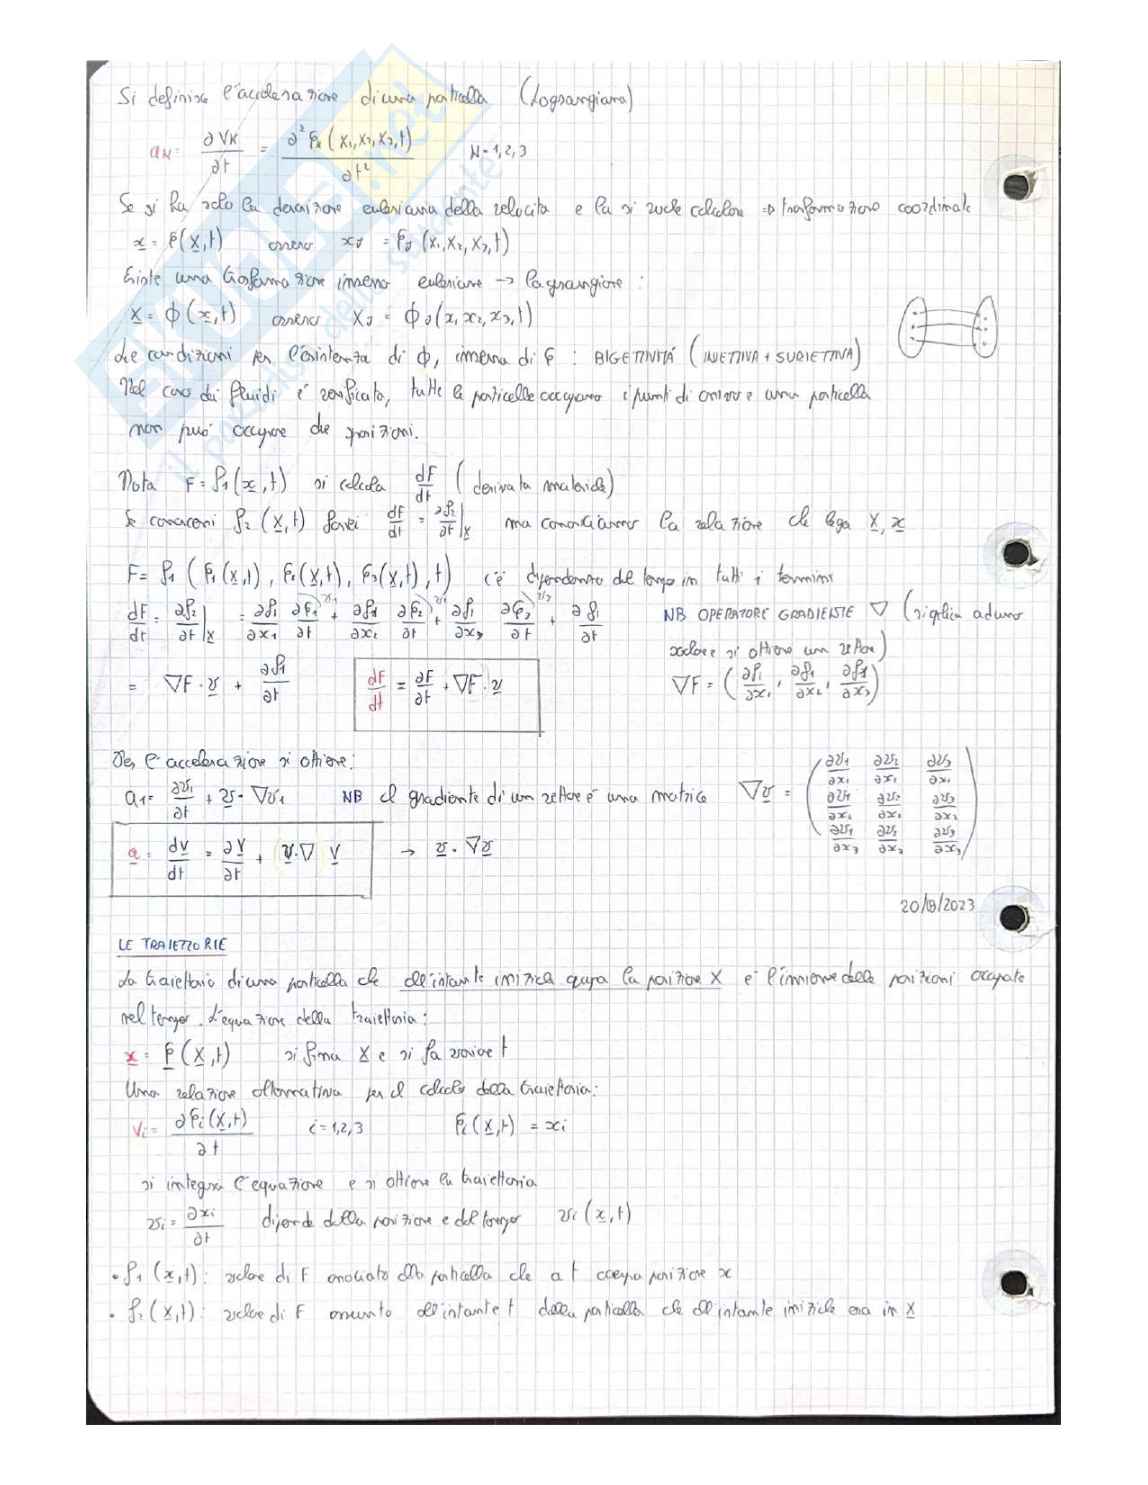 Si definisce l'accelerazione di una particella (Lagrangiana)
a_K = ∂V_K/∂t = ∂²φ_K (X₁,X₂,X₃,t)/∂t²   K=1,2,3
Se si ha solo la descrizione euleriana della velocità e la si vuole calcolare ⇒ trasformazione coordinate
x = φ(X,t) ovvero x_J = φ_J (X₁,X₂,X₃,t)
Esiste una trasformazione inversa euleriane → lagrangiane :
X = ϕ (x,t) ovvero X_J = ϕ_J (x₁,x₂,x₃,t)
due condizioni per l'esistenza di ϕ, inversa di φ : BIGETTIVITÁ (INIETTIVA + SURIETTIVA)
Nel caso dei fluidi é verificato, tutte le particelle occupano i punti di e una particella
non puó occupare due posizioni.
Nota F = f₁(x,t) si calcola dF/dt (derivata materiale)
Se conoscessi f₂ (X,t) farei dF/dt = ∂f₂/∂t |X ma conosciamo la relazione che lega X, x
F = f₁ (φ₁(X,t), φ₂(X,t), φ₃(X,t), t) c'é dipendenza del tempo in tutti i termini
dF/dt = ∂f₂/∂t |X = ∂f₁/∂x₁ ∂φ₁/∂t (v₁) + ∂f₁/∂x₂ ∂φ₂/∂t (v₂) + ∂f₁/∂x₃ ∂φ₃/∂t (v₃) + ∂f₁/∂t
NB OPERATORE GRADIENTE ∇ (si applica ad uno
scalare e si ottiene un vettore)
= ∇F · v + ∂f₁/∂t   dF/dt = ∂F/∂t + ∇F · v
∇F = (∂f₁/∂x₁, ∂f₁/∂x₂, ∂f₁/∂x₃)
Per l'accelerazione si ottiene:
a₁ = ∂v₁/∂t + v · ∇v₁   NB il gradiente di un vettore é una matrice
∇v = (∂v₁/∂x₁ ∂v₂/∂x₁ ∂v₃/∂x₁
∂v₁/∂x₂ ∂v₂/∂x₂ ∂v₃/∂x₂
∂v₁/∂x₃ ∂v₂/∂x₃ ∂v₃/∂x₃)
a = dv/dt = ∂v/∂t + v·∇ v → v · ∇v
2023
LE TRAIETTORIE
La traiettoria di una particella che all'instante iniziale occupa la posizione X é l'insieme delle posizioni occupate
nel tempo. L'equazione della traiettoria:
x = φ (X,t) si fissa X e si fa variare t
Una relazione alternativa per il calcolo della traiettoria:
V_i = ∂φ_i(X,t)/∂t   i=1,2,3   φ_i (X,t) = x_i
si integra l'equazione e si ottiene la traiettoria
v_i = ∂x_i/∂t dipende dalla posizione e del tempo v_i (x,t)
• f₁ (x,t): valore di F associato alla particella che a t occupa posizione x
• f₂ (X,t): valore di F assunto all'instante t dalla particella che all'instante iniziale era in X